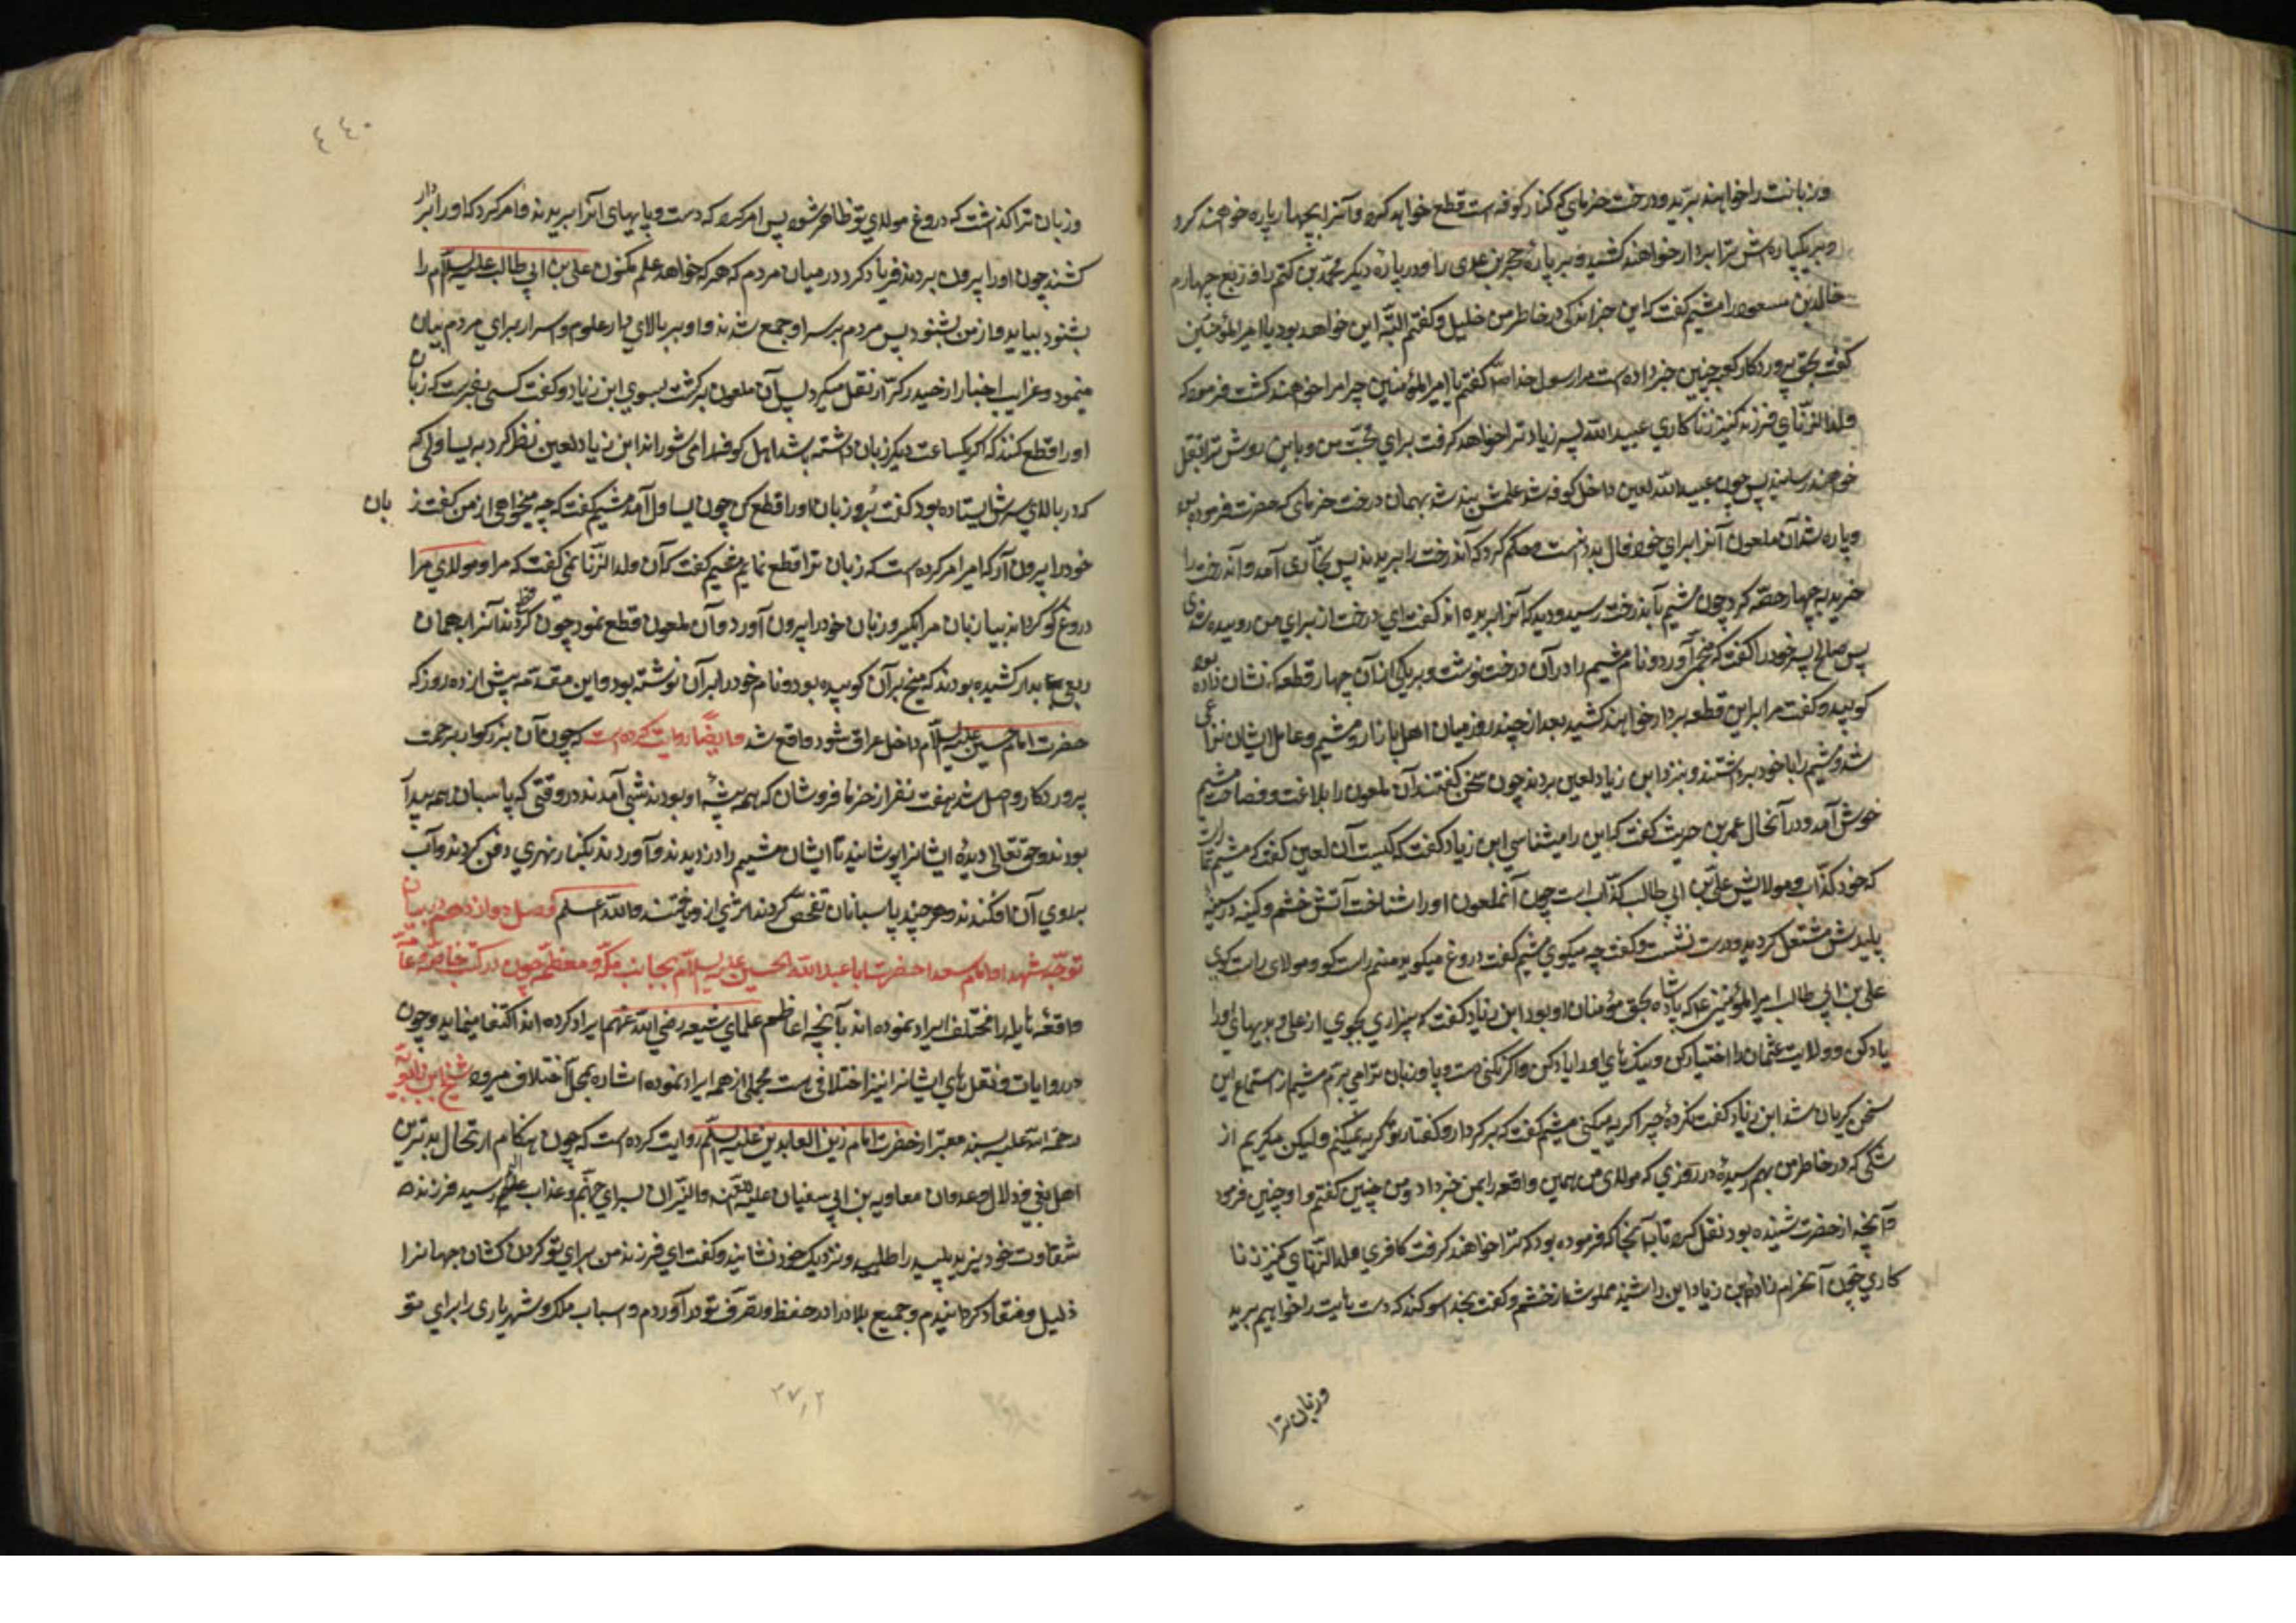 و زبانت را خواهند برید و درخت خرمای که در کنار کوفه است قطع خواهد کرد و آنرا بچهار پاره خواهند کرد
و بر یکپاره‌ش ترا بردار خواهند کشید و بر پارهٔ حجر بن عدی را و در پارهٔ دیگر محمد بن کثم را و ربع چهارم
خالد بن مسعود را میثم گفت که این خبر اندکی در خاطر من خلیل و گفتم البته این خواهد بود یا امیرالمؤمنین
گفت بحق پروردگار کعبه چنین خبر داده است مرا رسول خدا ص گفتم یا امیرالمؤمنین چرا مرا خواهند کشت فرمود که
ولدالزنای فرزند کنیز زناکاری عبیدالله پسر زیاد ترا خواهد گرفت برای محبت من و باین روش ترا بقتل
خواهند رسانید پس چون عبیدالله لعین داخل کوفه شد علمش بند شد بهمان درخت خرمای که حضرت فرموده بود
و پاره شد آن ملعون آنرا برای خود فال بد دانست و حکم کرد که آندرخت را بریدند پس نجاری آمد و آندرخت را
خرید به چهار حصه کرد چون میثم بآندرخت رسید و دید که آنرا بریده اند گفت ای درخت از برای من روییده شدی
پس صالح پسر خود را گفت که میخی آورد و نام میثم را در آن درخت نوشت و بر یکی از آن چهار قطعه که نشان داده بود
کوبید و گفت مرا بر این قطعه بردار خواهند کشید بعد از چند روز میان اهل بازار و میثم و عامل ایشان نزاعی
شد و میثم را با خود برداشتند و بنزد ابن زیاد لعین بردند چون سخن گفتند آن ملعون را بلاغت و فصاحت میثم
خوش آمد و در آنحال عمر بن حریث گفت که این را میشناسی ابن زیاد گفت که کیست آن لعین گفت که میثم تمار است
که خود کذاب و مولایش علی بن ابی طالب کذاب است چون آنملعون او را شناخت آتش خشم و کینه در سینهٔ
پلیدش مشتعل گردید و درست نشست و گفت چه میکوی میثم گفت دروغ میکوید منم راست کو و مولای راست کوی
علی بن ابی طالب امیرالمؤمنین ع که پادشاه بحق مؤمنان او بود ابن زیاد گفت که بیزاری بجوی از علی و بدیهای او را
یاد کن و ولایت عثمان را اختیار کن و نیک های او را یاد کن و اکر نکنی دست و پا و زبان ترا می برم میثم از استماع این
سخن گریان شد ابن زیاد گفت نکرده چرا گریه میکنی میثم گفت که بر کردار و گفتار تو گریه نمیکنم ولیکن میگریم از
شکی که در خاطر من بهم رسیده در روزی که مولای من بهمین واقعه را بمن خبر داد و من چنین گفتم و او چنین فرمود
و آنچه از حضرت شنیده بود نقل کرد تا بآنجا که فرموده بود که ترا خواهند گرفت کافری ولدالزنای کنیز زنا
کاری چون آنحرام زاده ابن زیاد این را شنید مملو شد از خشم و گفت بخدا سوکند که دست پایت را خواهیم برید
و زبان ترا
۴۴۰
و زبان ترا گذاشت که دروغ مولای تو ظاهر شود پس امر کرد که دست و پایهای آنرا بریدند و امر کرد که او را بردار
کشند چون او را بیرون بردند فریاد کرد در میان مردم که هر که خواهد علم مکنون علی بن ابی طالب علیه السلام را
بشنود بیاید و از من بشنود پس مردم بر سر او جمع شدند و او بر بالای دار علوم و اسرار برای مردم بیان
مینمود و غرایب اخبار از حیدر کرار نقل میکرد پس آن ملعون برگشت بسوی ابن زیاد و گفت کسی بفرست که زبان
او را قطع کنند که اگر یکساعت دیگر زبان داشته باشد اهل کوفه را می شوراند ابن زیاد لعین نظر کرد به یساولی که
که در بالای سرش ایستاده بود گفت برو زبان او را قطع کن چون یساول آمد میثم گفت که چه میخواهی از من گفت زبان
خود را بیرون آر که امیر امر کرده است که زبان ترا قطع نمایم میثم گفت که آن ولدالزنا نمی گفت که مرا و مولای مرا
دروغ گو گرداند بیا زبان مرا بگیر و زبان خود را بیرون آورد و آن ملعون قطع نمود چون نظر کردند آنرا بهمان
ربعی بدار کشیده بودند که میخ بر آن کوبیده بود و نام خود را بر آن نوشته بود و این مقدمه پیش از ده روز که
حضرت امام حسین علیه السلام داخل عراق شود واقع شد و ایضا روایت کرده است که چون آن بزرکوار برحمت
پروردکار واصل شد هفت نفر از خرما فروشان که هم پیشهٔ او بودند شبی آمدند در وقتی که پاسبان همه بیدار
بودند و حق تعالی دیده ایشانرا پوشانید تا ایشان میثم را دزدیدند و آوردند بکنار نهری دفن کردند و آب
بروی آن افکندند و هر چند پاسبانان تفحص کردند اثری از و نیافتند والله اعلم فصل دوازدهم در بیان
توجه شهدا و امام سعدا حضرت ابا عبدالله الحسین علیه السلام بجانب مکه معظمه چون در کتب خاصه و عامه
واقعه هایله را مختلف ایراد نموده اند بآنچه اعاظم علمای شیعه رضی الله عنهم ایراد کرده اند اکتفا مینماید و چون
در روایات و نقل های ایشانرا نیز اختلافی هست مجملی از همه ایراد نموده اشاره بمحل اختلاف میرود شیخ ابن بابویه
رحمة الله علیه بسند معتبر از حضرت امام زین العابدین علیه السلم روایت کرده است که چون هنگام ارتحال بدترین
اهل بغی و ضلال و عدوان معاویة بن ابی سفیان علیه اللعنة والنیران بسرای جهنم و عذاب الیم رسید فرزنده
شقاوت خود یزید پلید را طلبید و نزدیک خود نشانید و گفت ای فرزند من برای تو گردن کشان جهانرا
ذلیل و منقاد گردانیدم و جمیع بلاد را در حفظ و تصرف تو در آوردم و اسباب ملک و شهریاری را برای تو
۲۷٫۲